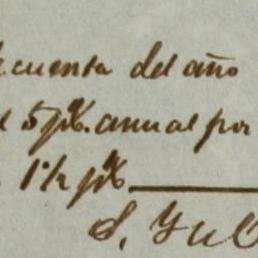 cuenta del año
5 p%. anual por
1½ p%
S. Yu